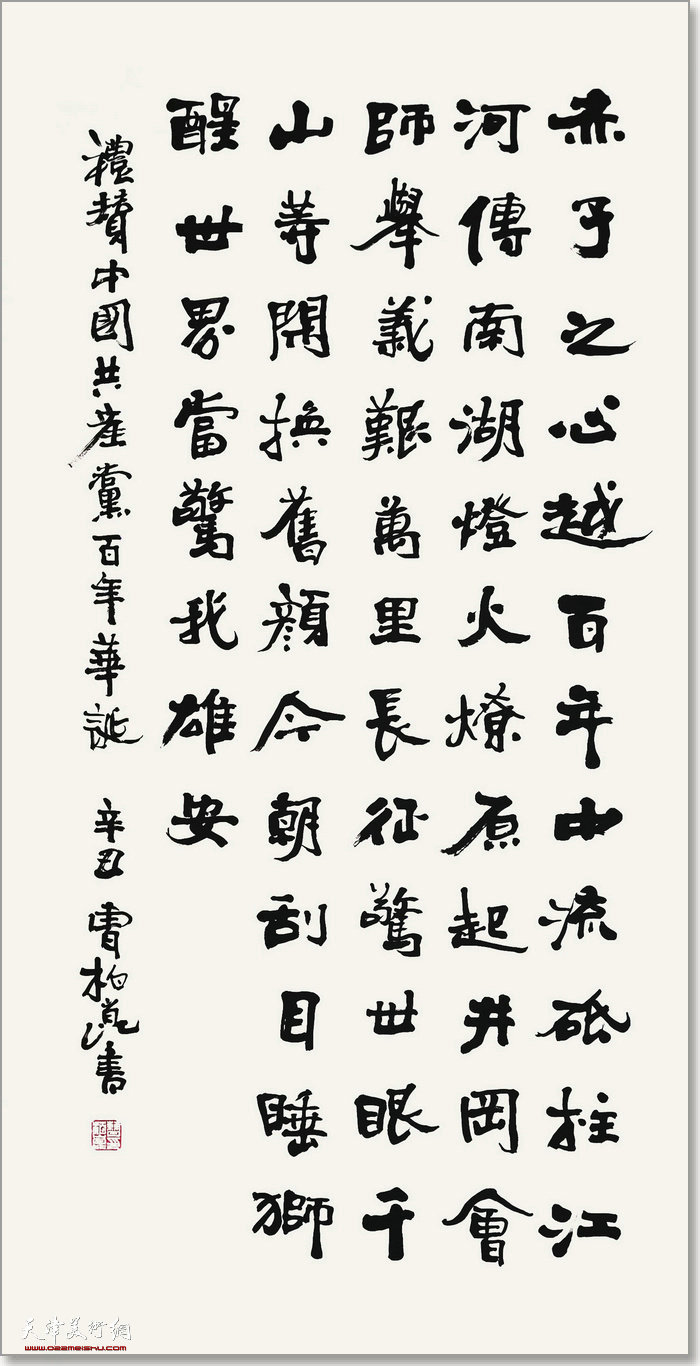 赤子之心越百年中流砥柱江
河傳南湖燈火燎原起井岡會
師舉義艱萬里長征驚世眼千
山等閑換舊顏今朝刮目睡獅
醒世界當驚我雄安
禮贊中國共產黨百年華誕 辛丑 曹柏崑書
天津美術網
www.022meishu.com